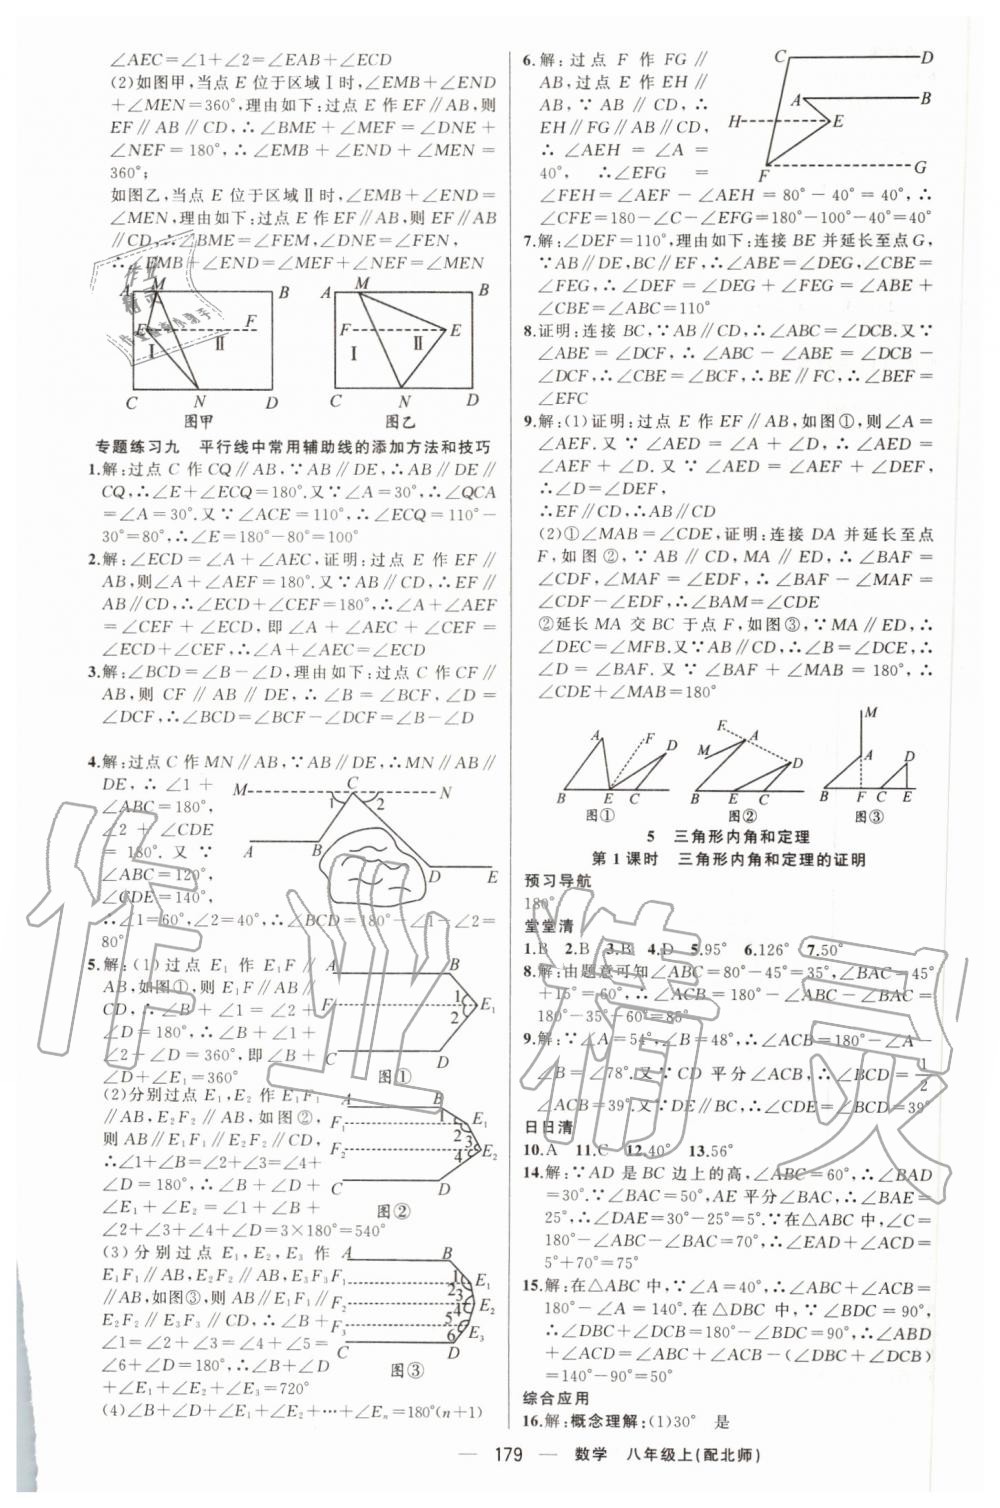 ∠AEC=∠1+∠2=∠EAB+∠ECD
(2)如图甲,当点 E 位于区域Ⅰ时,∠EMB+∠END
+∠MEN=360°,理由如下:过点 E 作 EF∥AB,则
EF∥AB∥CD,∴∠BME+∠MEF=∠DNE+
∠NEF=180°,∴∠EMB+∠END+∠MEN=
360°;
如图乙,当点 E 位于区域Ⅱ时,∠EMB+∠END=
∠MEN,理由如下:过点 E 作 EF∥AB,则 EF∥AB
∥CD,∴∠BME=∠FEM,∠DNE=∠FEN,
∴∠EMB+∠END=∠MEF+∠NEF=∠MEN
A M B
E F
Ⅰ Ⅱ
C N D
图甲
A M B
F E
Ⅰ Ⅱ
C N D
图乙
专题练习九 平行线中常用辅助线的添加方法和技巧
1.解:过点 C 作 CQ∥AB,∵AB∥DE,∴AB∥DE∥
CQ,∴∠E+∠ECQ=180°.又∵∠A=30°,∴∠QCA
=∠A=30°.又∵∠ACE=110°,∴∠ECQ=110°-
30°=80°,∴∠E=180°-80°=100°
2.解:∠ECD=∠A+∠AEC,证明:过点 E 作 EF∥
AB,则∠A+∠AEF=180°.又∵AB∥CD,∴EF∥
AB∥CD,∴∠ECD+∠CEF=180°,∴∠A+∠AEF
=∠CEF+∠ECD,即∠A+∠AEC+∠CEF=
∠ECD+∠CEF,∴∠A+∠AEC=∠ECD
3.解:∠BCD=∠B-∠D,理由如下:过点 C 作 CF∥
AB,则 CF∥AB∥DE,∴∠B=∠BCF,∠D=
∠DCF,∴∠BCD=∠BCF-∠DCF=∠B-∠D
4.解:过点 C 作 MN∥AB,∵AB∥DE,∴MN∥AB∥
DE,∴∠1+
∠ABC=180°,
∠2+∠CDE
=180°.又∵
∠ABC=120°,
∠CDE=140°,
∴∠1=60°,∠2=40°,∴∠BCD=180°-∠1-∠2=
80°
M C N
1 2
A B
D E
5.解:(1)过点 E₁ 作 E₁F∥
AB,如图①,则 E₁F∥AB∥
CD,∴∠B+∠1=∠2+
∠D=180°,∴∠B+∠1+
∠2+∠D=360°,即∠B+
∠D+∠E₁=360°
A B
F 1 2 E₁
C D
图①
(2)分别过点 E₁,E₂ 作 E₁F₁
∥AB,E₂F₂∥AB,如图②,
则 AB∥E₁F₁∥E₂F₂∥CD,
∴∠1+∠B=∠2+∠3=∠4+
∠D=180°,∴∠B+∠D+
∠E₁+∠E₂=∠1+∠B+
∠2+∠3+∠4+∠D=3×180°=540°
A B
F₁ 1 E₁
2 3
F₂ 4 E₂
C D
图②
(3)分别过点 E₁,E₂,E₃ 作
E₁F₁∥AB,E₂F₂∥AB,E₃F₃
∥AB,如图③,则 AB∥E₁F₁∥
E₂F₂∥E₃F₃∥CD,∴∠B+
∠1=∠2+∠3=∠4+∠5=
∠6+∠D=180°,∴∠B+∠D
+∠E₁+∠E₂+∠E₃=720°
A B
F₁ 1 E₁
2 3
F₂ 4 E₂
5
F₃ 6 E₃
C D
图③
(4)∠B+∠D+∠E₁+∠E₂+⋯+∠Eₙ=180°(n+1)
6.解:过点 F 作 FG∥
AB,过点 E 作 EH∥
AB,∵AB∥CD,∴
EH∥FG∥AB∥CD,
∴∠AEH=∠A=
40°,∴∠EFG=
∠FEH=∠AEF-∠AEH=80°-40°=40°,∴
∠CFE=180-∠C-∠EFG=180°-100°-40°=40°
C D
A B
H E
F G
7.解:∠DEF=110°,理由如下:连接 BE 并延长至点 G,
∵AB∥DE,BC∥EF,∴∠ABE=∠DEG,∠CBE=
∠FEG,∴∠DEF=∠DEG+∠FEG=∠ABE+
∠CBE=∠ABC=110°
8.证明:连接 BC,∵AB∥CD,∴∠ABC=∠DCB.又∵
∠ABE=∠DCF,∴∠ABC-∠ABE=∠DCB-
∠DCF,∴∠CBE=∠BCF,∴BE∥FC,∴∠BEF=
∠EFC
9.解:(1)证明:过点 E 作 EF∥AB,如图①,则∠A=
∠AEF.又∵∠AED=∠A+∠D,∴∠AED=
∠AEF+∠D.又∵∠AED=∠AEF+∠DEF,
∴∠D=∠DEF,
∴EF∥CD,∴AB∥CD
(2)①∠MAB=∠CDE,证明:连接 DA 并延长至点
F,如图②,∵AB∥CD,MA∥ED,∴∠BAF=
∠CDF,∠MAF=∠EDF,∴∠BAF-∠MAF=
∠CDF-∠EDF,∴∠BAM=∠CDE
②延长 MA 交 BC 于点 F,如图③,∵MA∥ED,∴
∠DEC=∠MFB.又∵AB∥CD,∴∠B=∠DCE,∴
∠D=∠BAF.又∵∠BAF+∠MAB=180°,∴
∠CDE+∠MAB=180°
A F D
B E C
图①
F A
M D
B E C
图②
M
A D
B F C E
图③
5 三角形内角和定理
第 1 课时 三角形内角和定理的证明
预习导航
180°
堂堂清
1.B 2.B 3.B 4.D 5.95° 6.126° 7.50°
8.解:由题意可知∠ABC=80°-45°=35°,∠BAC=45°
+15°=60°,∴∠ACB=180°-∠ABC-∠BAC=
180°-35°-60°=85°
9.解:∵∠A=54°,∠B=48°,∴∠ACB=180°-∠A-
∠B=∠78°.又∵CD 平分∠ACB,∴∠BCD=1/2
∠ACB=39°.又∵DE∥BC,∴∠CDE=∠BCD=39°
日日清
10.A 11.C 12.40° 13.56°
14.解:∵AD 是 BC 边上的高,∠ABC=60°,∴∠BAD
=30°.∵∠BAC=50°,AE 平分∠BAC,∴∠BAE=
25°,∴∠DAE=30°-25°=5°.∵在△ABC 中,∠C=
180°-∠ABC-∠BAC=70°,∴∠EAD+∠ACD=
5°+70°=75°
15.解:在△ABC 中,∵∠A=40°,∴∠ABC+∠ACB=
180°-∠A=140°.在△DBC 中,∵∠BDC=90°,
∴∠DBC+∠DCB=180°-∠BDC=90°,∴∠ABD
+∠ACD=∠ABC+∠ACB-(∠DBC+∠DCB)
=140°-90°=50°
综合应用
16.解:概念理解:(1)30° 是
— 179 — 数学 八年级上(配北师)
作业精灵